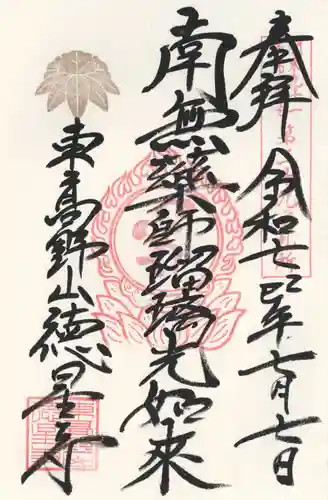 奉拝 令和七巳年七月七日
南無薬師瑠璃光如来
東高野山徳星寺